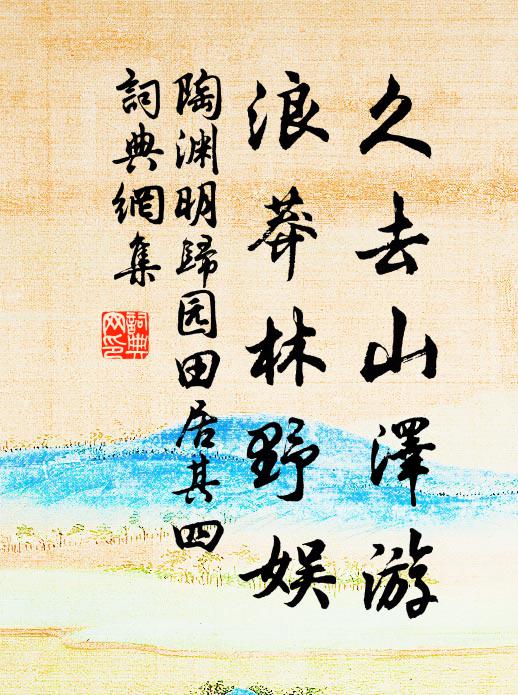 久去山澤游
浪莽林野娱
陶渊明歸园田居其四
詞典網集
詞典
网印